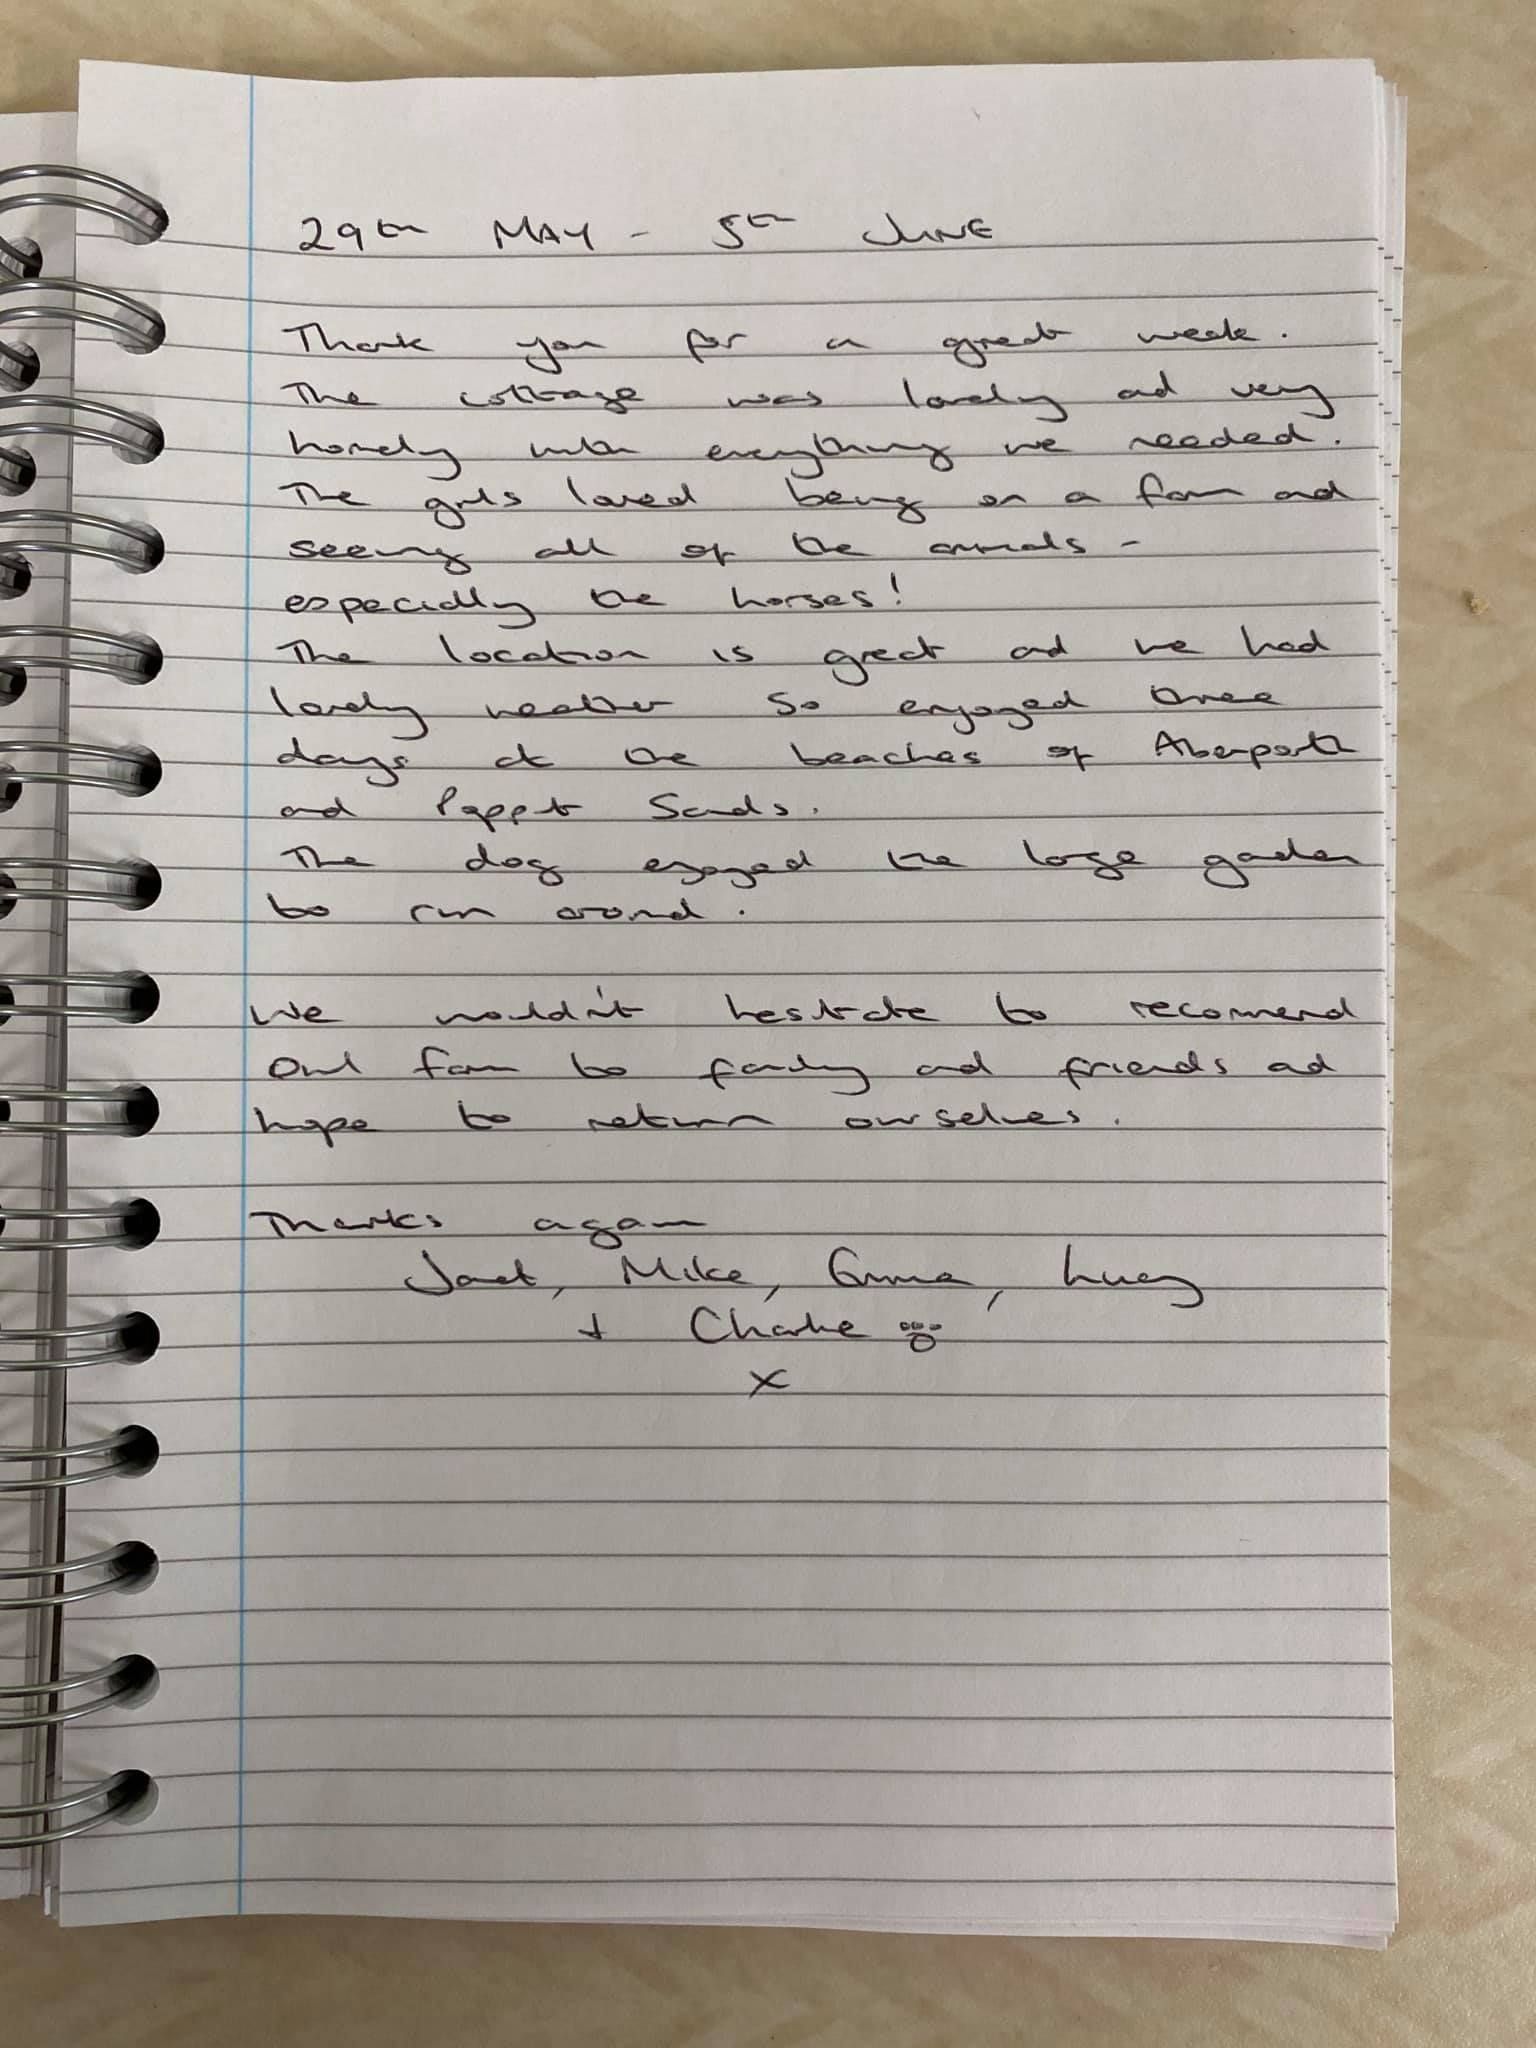 29th MAY - 5th JUNE
Thank you for a great week.
The cottage was lovely and very
homely with everything we needed.
The girls loved being on a farm and
seeing all of the animals -
especially the horses!
The location is great and we had
lovely weather so enjoyed three
days at the beaches of Aberporth
and Poppit Sands.
The dog enjoyed the large garden
to run around.
We wouldn't hesitate to recommend
Owl farm to family and friends and
hope to return ourselves.
Thanks again
Janet, Mike, Emma, Lucy
+ Charlie
x